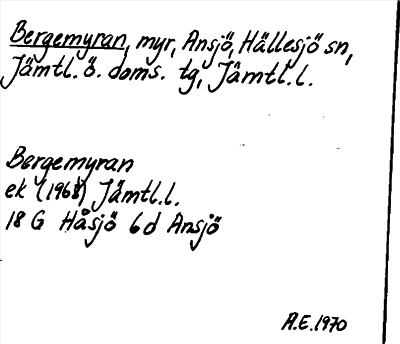 Bergemyran, myr, Ansjö, Hällesjö sn,
Jämtl. ö. doms. tg, Jämtl.l.
Bergemyran
ek (1968) Jämtl.l.
18 G Håsjö 6d Ansjö
A.E. 1970